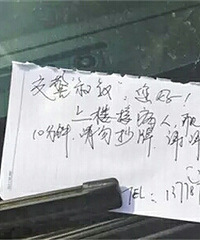 交警叔叔：您好！
上楼接病人，
10分钟，请勿抄牌，谢谢
TEL：137